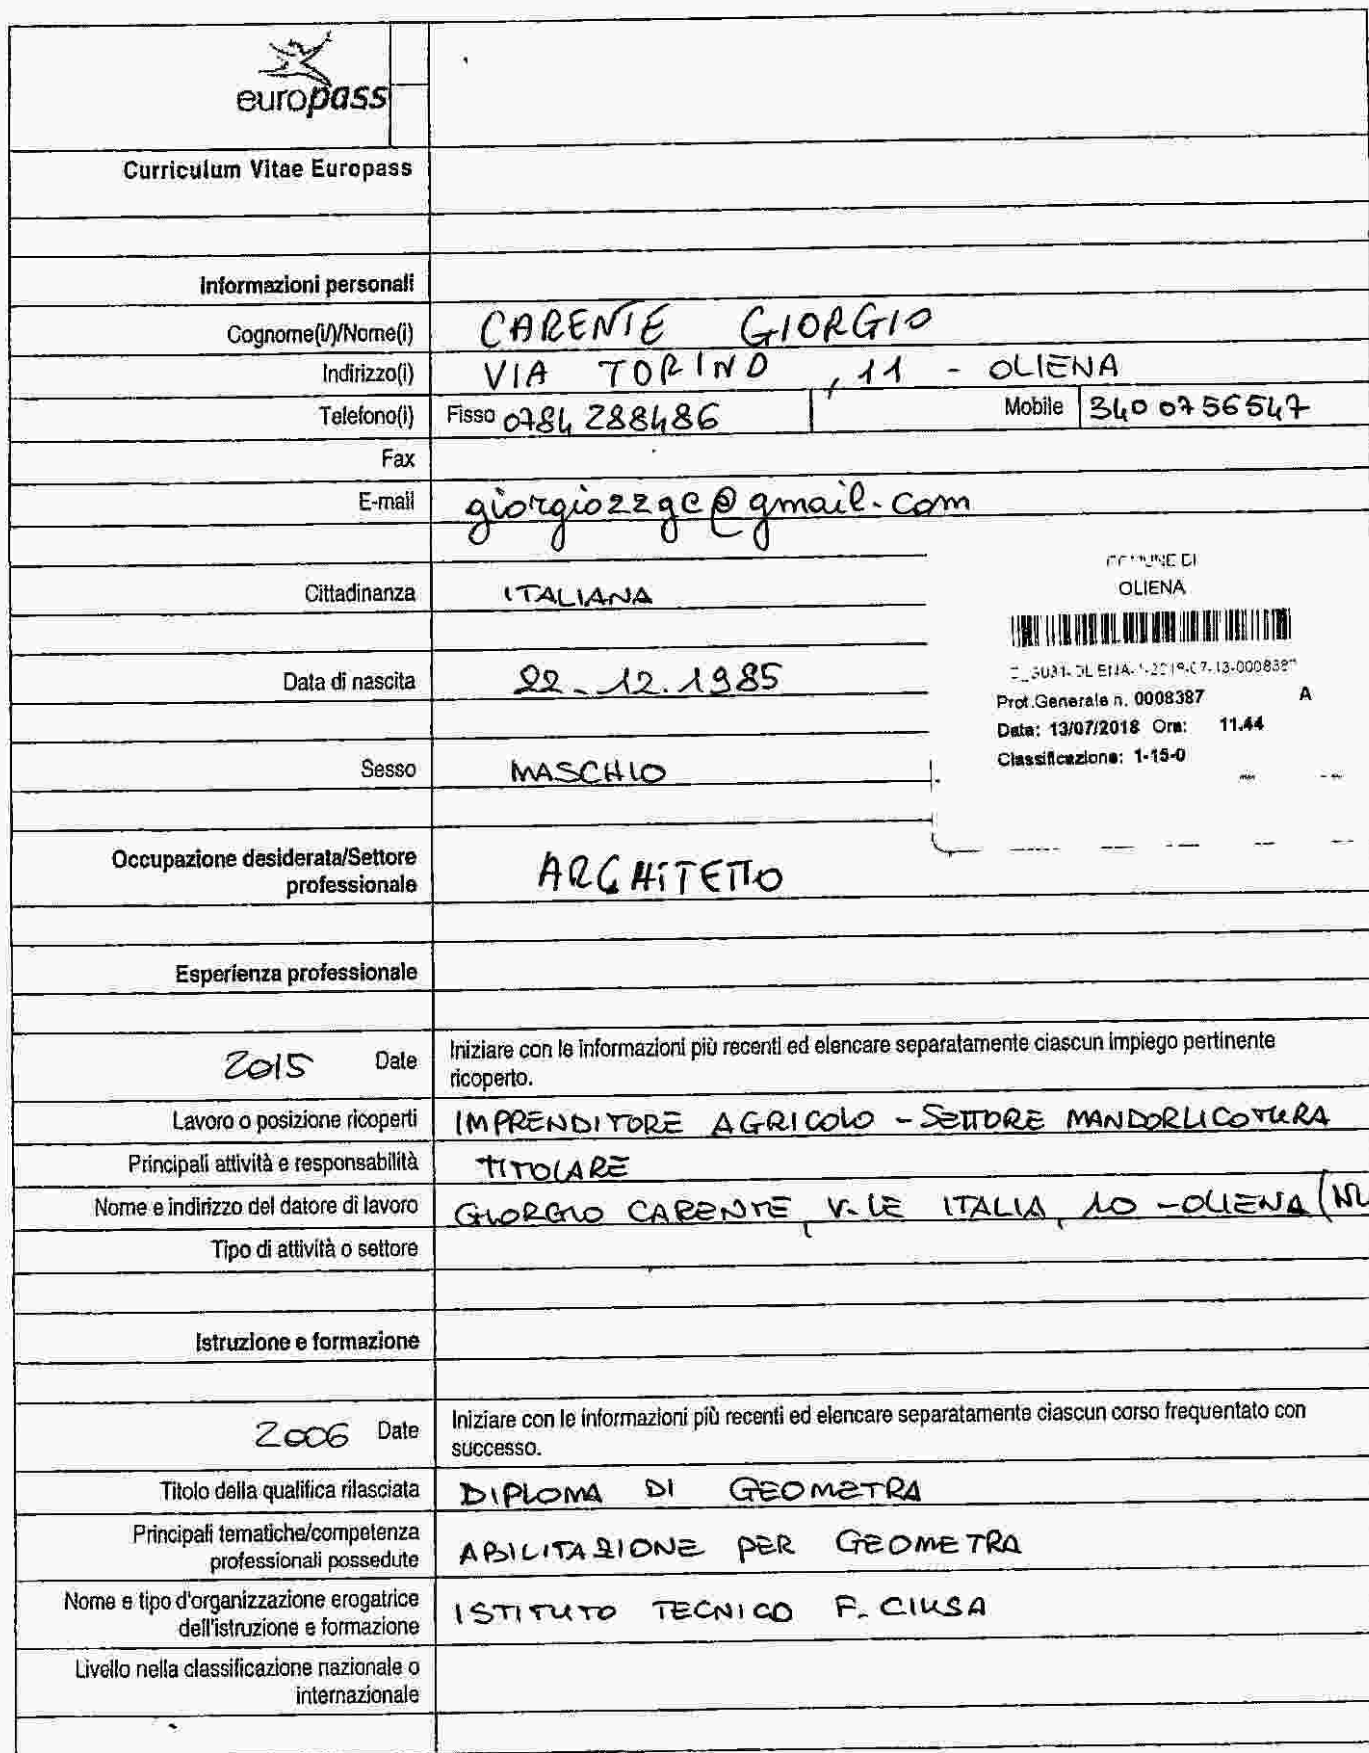 europass
Curriculum Vitae Europass
Informazioni personali
Cognome(i/)/Nome(i) CARENTE GIORGIO
Indirizzo(i) VIA TORINO, 11 - OLIENA
Telefono(i) Fisso 0784 288486 Mobile 340 0756547
Fax
E-mail giorgio22gc@gmail.com
COMUNE DI
OLIENA
Cittadinanza ITALIANA
Data di nascita 22.12.1985
Prot.Generale n. 0008387 A
Data: 13/07/2018 Ora: 11.44
Classificazione: 1-15-0
Sesso MASCHIO
Occupazione desiderata/Settore
professionale ARCHITETTO
Esperienza professionale
2015 Date Iniziare con le informazioni più recenti ed elencare separatamente ciascun impiego pertinente
ricoperto.
Lavoro o posizione ricoperti IMPRENDITORE AGRICOLO - SETTORE MANDORLICOTURA
Principali attività e responsabilità TITOLARE
Nome e indirizzo del datore di lavoro GIORGIO CARENTE, V.LE ITALIA, 10 - OLIENA (NU
Tipo di attività o settore
Istruzione e formazione
2006 Date Iniziare con le informazioni più recenti ed elencare separatamente ciascun corso frequentato con
successo.
Titolo della qualifica rilasciata DIPLOMA DI GEOMETRA
Principali tematiche/competenza
professionali possedute ABILITAZIONE PER GEOMETRA
Nome e tipo d'organizzazione erogatrice
dell'istruzione e formazione ISTITUTO TECNICO F. CIUSA
Livello nella classificazione nazionale o
internazionale